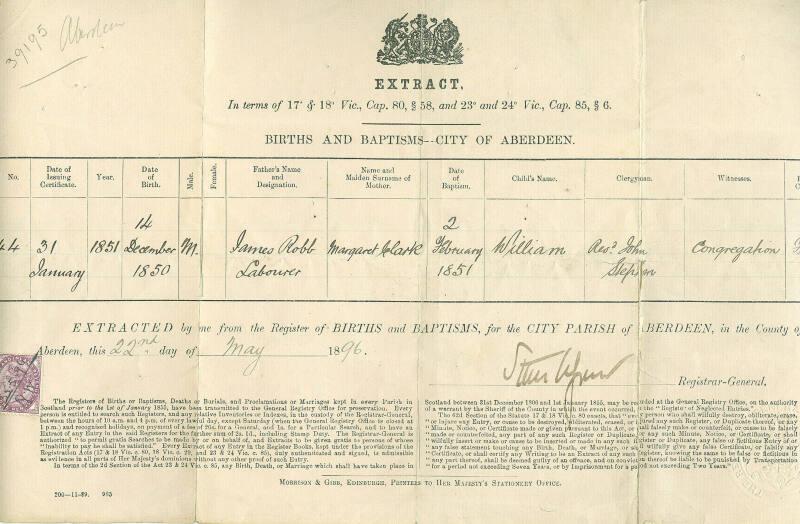 39195 Aberdeen
EXTRACT,
In terms of 17° & 18° Vic., Cap. 80, § 58, and 23° and 24° Vic., Cap. 85, § 6.
BIRTHS AND BAPTISMS--CITY OF ABERDEEN.
No. Date of Issuing Certificate. Year. Date of Birth. Male. Female. Father's Name and Designation. Name and Maiden Surname of Mother. Date of Baptism. Child's Name. Clergyman. Witnesses.
14 2
44 31 1851 December M. James Robb Margaret Clark February William Rev.d John Congregation
January 1850 Labourer 1851 Stephen
EXTRACTED by me from the Register of BIRTHS and BAPTISMS, for the CITY PARISH of ABERDEEN, in the County of
Aberdeen, this 22nd day of May 1896.
Registrar-General.
The Registers of Births or Baptisms, Deaths or Burials, and Proclamations or Marriages kept in every Parish in
Scotland prior to the 1st of January 1855, have been transmitted to the General Registry Office for preservation. Every
person is entitled to search such Registers, and any relative Inventories or Indexes, in the custody of the Registrar-General,
between the hours of 10 a.m. and 4 p.m. of every lawful day, except Saturday (when the General Registry Office is closed at
1 p.m.) and recognised holidays, on payment of a fee of 20s. for a General, and 1s. for a Particular Search, and to have an
Extract of any Entry in the said Registers for the further sum of 2s. 1d., including Stamp Duty. The Registrar-General is
authorized "to permit gratis Searches to be made by or on behalf of, and Extracts to be given gratis to persons of whose
"Inability to pay he shall be satisfied." Every Extract of any Entry in the Register Books, kept under the provisions of the
Registration Acts (17 & 18 Vic. c. 80, 18 Vic. c. 29, and 23 & 24 Vic. c. 85), duly authenticated and signed, is admissible
as evidence in all parts of Her Majesty's dominions without any other proof of such Entry.
In terms of the 2d Section of the Act 23 & 24 Vic. c. 85, any Birth, Death, or Marriage which shall have taken place in
Scotland between 31st December 1800 and 1st January 1855, may be recorded at the General Registry Office, on the authority
of a warrant by the Sheriff of the County in which the event occurred, in the "Register of Neglected Entries."
The 62d Section of the Statute 17 & 18 Vic. c. 80 enacts, that "every person who shall willfully destroy, obliterate, erase,
"or injure any Entry, or cause to be destroyed, obliterated, erased, or injured any such Register, or Duplicate thereof, or any
"Minute, Notice, or Certificate made or granted pursuant to this Act, or shall falsely make or counterfeit, or cause to be falsely
"made or counterfeited, any part of any such Register or Duplicate or any such Minute, Notice, or Certificate, or shall
"wilfully insert or make or cause to be inserted or made in any such Register or Duplicate, any false or fictitious Entry of or
"any false statement touching any Birth, Death, or Marriage, or shall wilfully give any false Certificate, or falsely
"Certificate, or shall certify any Writing to be an Extract of any such Register, knowing the same to be false or fictitious in
"any part thereof, shall be deemed guilty of an offence, and on conviction thereof be liable to be punished by Transportation
"for a period not exceeding Seven Years, or by Imprisonment for a period not exceeding Two Years."
MORRISON & GIBB, EDINBURGH, PRINTERS TO HER MAJESTY'S STATIONERY OFFICE.
200--11-89. 965